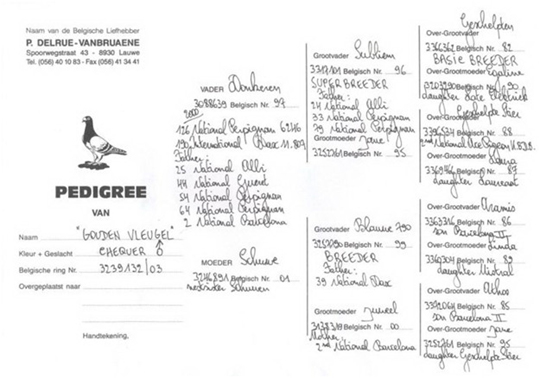 Naam van de Belgische Liefhebber
P. DELRUE-VANBRUAENE
Spoorwegstraat 43 - 8930 Lauwe
Tel. (056) 40 10 83 - Fax (056) 41 34 41
PEDIGREE
VAN
Naam "GOUDEN VLEUGEL"
Kleur + Geslacht CHEQUER
Belgische ring Nr. 3239132/03
Overgeplaatst naar
Handtekening,
VADER Donkeren
3088639 Belgisch Nr. 97
2000
126 National Perpignan 6246
19 International Dax
Father:
25 National Albi
44 National
54 National Perpignan
64 National Perpignan
2 National Barcelona
MOEDER Schuwe
3246891 Belgisch Nr. 01
Grootvader Subliem
Belgisch Nr. 96
SUPER BREEDER
Father:
24 National Albi
33 National Perpignan
79 National Perpignan
Grootmoeder Jane
3252761 Belgisch Nr. 95
Grootvader Blauwe 790
Belgisch Nr. 99
BREEDER
Father:
39 National Dax
Grootmoeder Juweel
Belgisch Nr. 00
Mother:
2nd National Barcelona
Over-Grootvader Geschelpten
3366362 Belgisch Nr. 82
BASIC BREEDER
Over-Grootmoeder
3203290 Belgisch Nr. 90
daughter Late Electrieck
Over-Grootvader Geschelpte Stier
3396534 Belgisch Nr. 88
2nd National
Over-Grootmoeder
Belgisch Nr. 87
daughter Laureaat
Over-Grootvader Aramis
Belgisch Nr. 86
son Barcelona II
Over-Grootmoeder Linda
Belgisch Nr. 89
daughter Mistral
Over-Grootvader Athos
3392064 Belgisch Nr. 85
son Barcelona II
Over-Grootmoeder Jane
3252761 Belgisch Nr. 95
daughter Geschelpte Stier